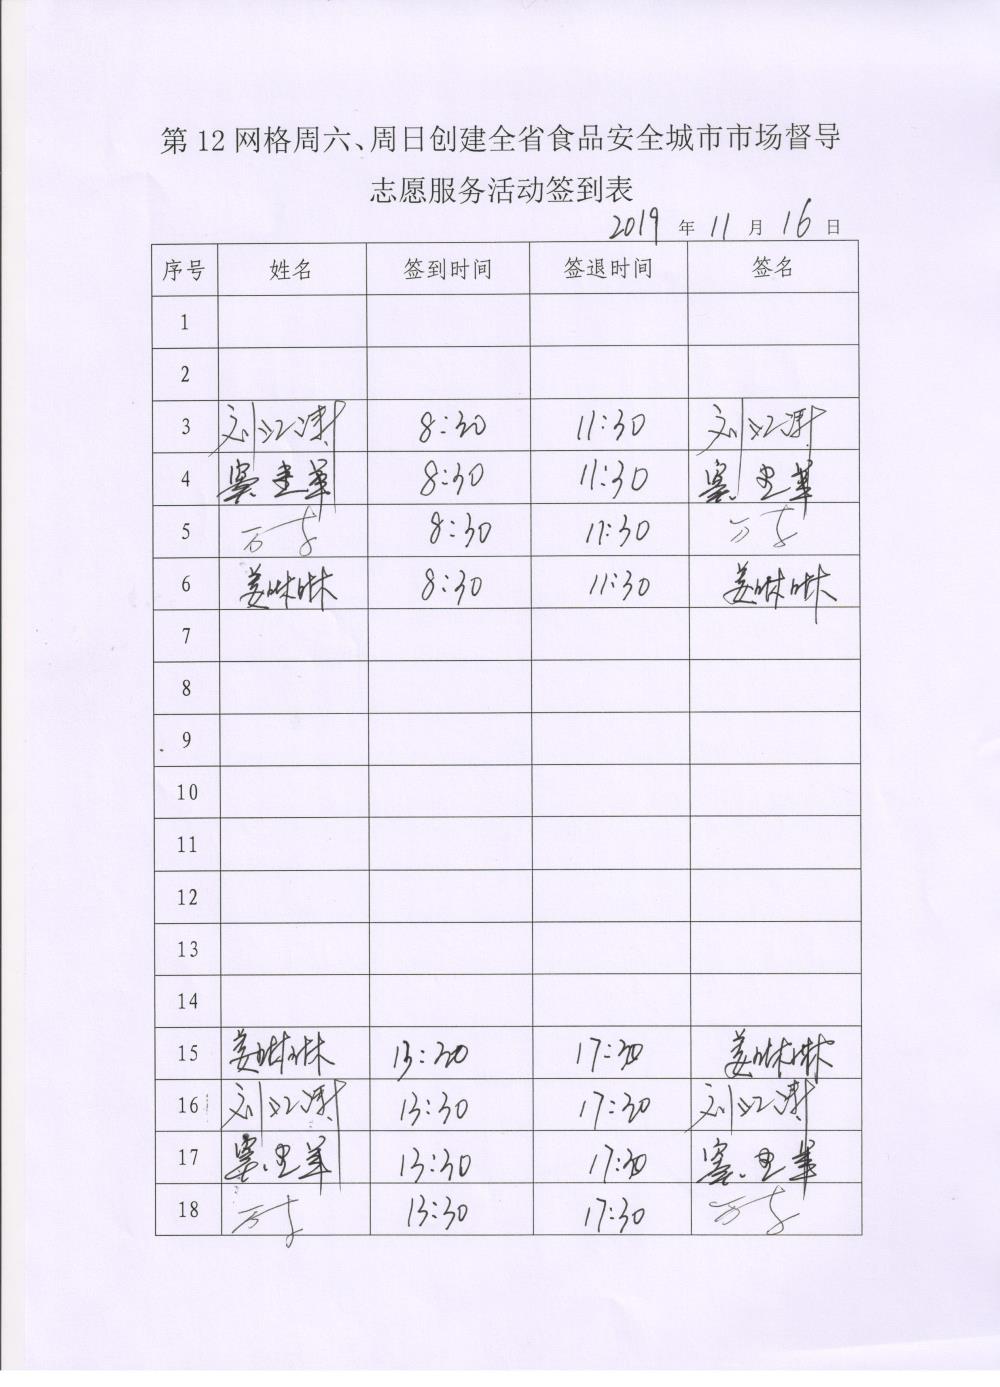 第12网格周六、周日创建全省食品安全城市市场督导
志愿服务活动签到表
2019 年 11 月 16 日
序号 姓名 签到时间 签退时间 签名
1
2
3 刘江涛 8:30 11:30 刘江涛
4 8:30 11:30
5 万李 8:30 11:30 万李
6 姜琳琳 8:30 11:30 姜琳琳
7
8
9
10
11
12
13
14
15 姜琳琳 13:30 17:30 姜琳琳
16 刘江涛 13:30 17:30 刘江涛
17 13:30 17:30
18 万李 13:30 17:30 万李